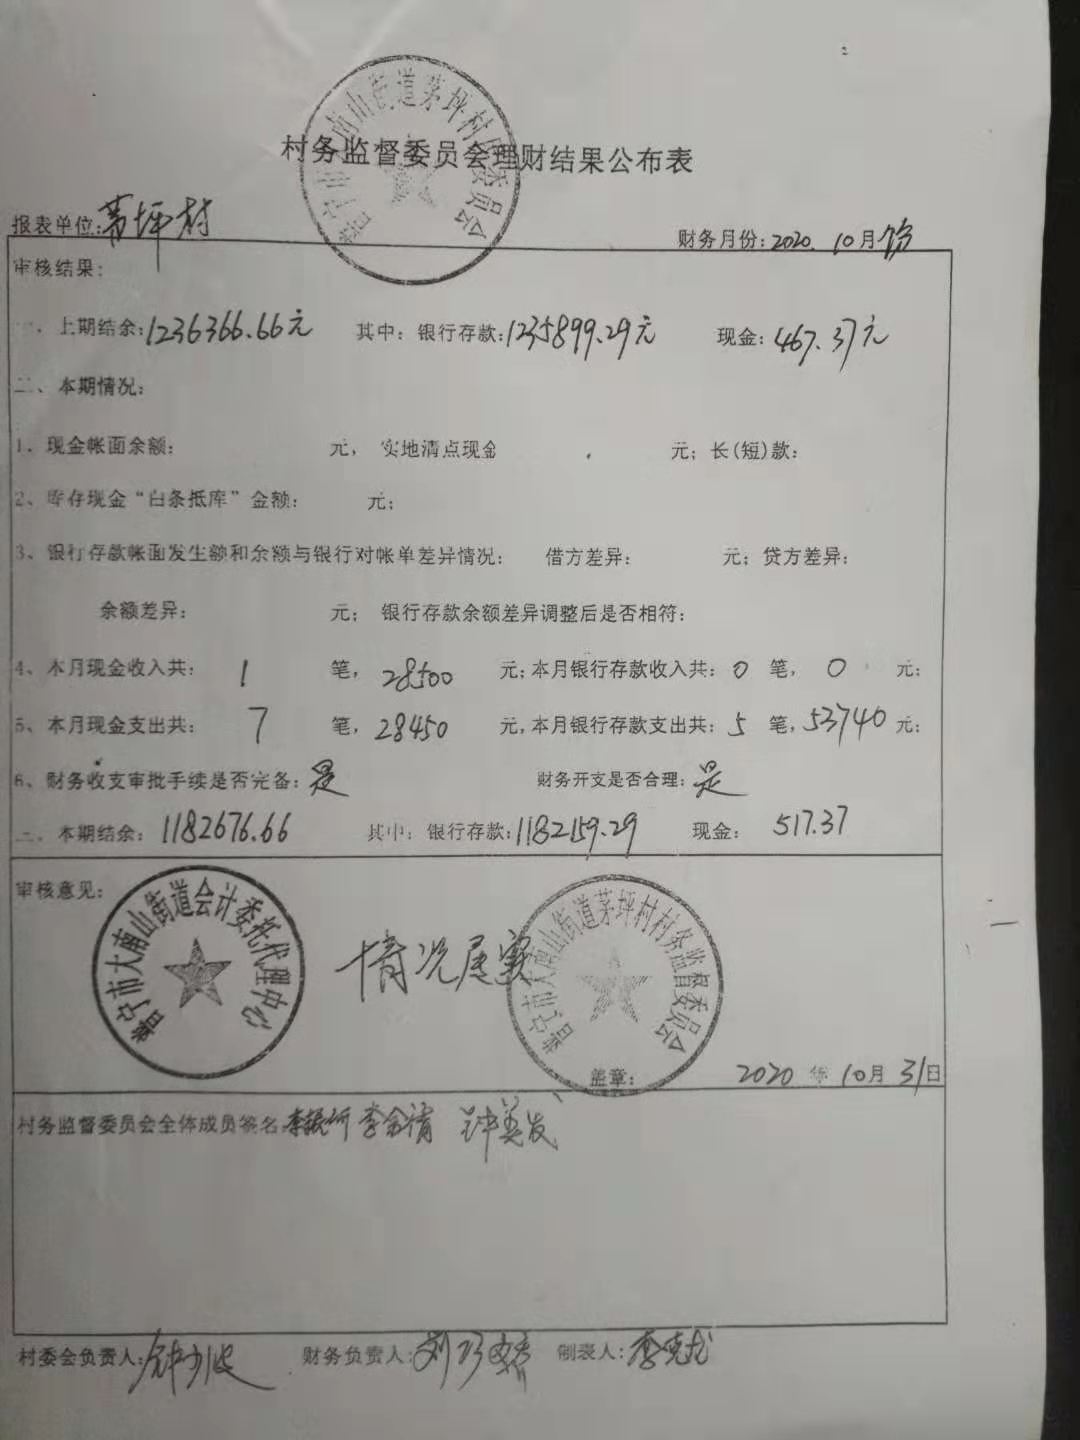 村务监督委员会理财结果公布表
普宁市大南山街道茅坪村民委员会
报表单位:茅坪村 财务月份:2020.10月份
审核结果:
一、上期结余:1236366.66元 其中:银行存款:1235899.29元 现金:467.37元
二、本期情况:
1、现金帐面余额: 元, 实地清点现金 元;长(短)款:
2、库存现金“白条抵库”金额: 元;
3、银行存款帐面发生额和余额与银行对帐单差异情况: 借方差异: 元;贷方差异:
余额差异: 元; 银行存款余额差异调整后是否相符:
4、本月现金收入共: 1 笔, 28500 元;本月银行存款收入共:0 笔, 0 元;
5、本月现金支出共: 7 笔, 28450 元,本月银行存款支出共:5 笔,53740 元;
6、财务收支审批手续是否完备:是 财务开支是否合理:是
三、本期结余:1182676.66 其中:银行存款:1182159.29 现金: 517.37
审核意见:
普宁市大南山街道会计委托代理中心
情况属实
普宁市大南山街道茅坪村村务监督委员会
盖章: 2020 年 10月 31日
村务监督委员会全体成员签名 李 李 钟美发
村委会负责人: 钟 财务负责人: 刘 制表人:李